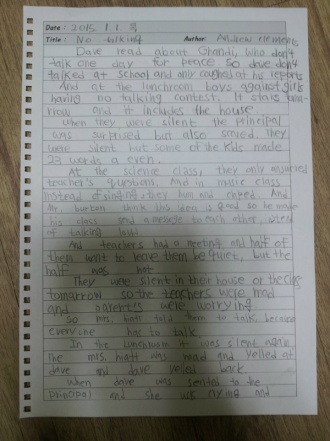 Date : 2015 / 1 .
Title : No talking Author: Andrew clements
Dave read about Ghandi, who don't
talk one day for peace so dave don't
talked at school and only coughed at his reports
And at the lunchroom boys against girls
having no talking contest. It stats
now and it includes the house.
When they were silent the principal
was surprised but also smiled. they
were silent but some of the kids made
23 words a even.
At the science class, they only answered
teacher's questions, And in music class
instead of singing, they hum and And
Mr. burton think was idea and so he made
his class send a message to each other,
of talking loud
And teachers had a meeting and half of
them want to leave them be quiet, but the
half was not.
They were silent in their house or the
tomorrow so the teachers were mad
and parent's were worrying
So mrs. hiatt told them to talk, because
every one has to talk
In the lunchroom it was silent again
the mrs. hiatt was mad and yelled at
dave and dave yelled back.
When dave was sented to the
principal and she ask and